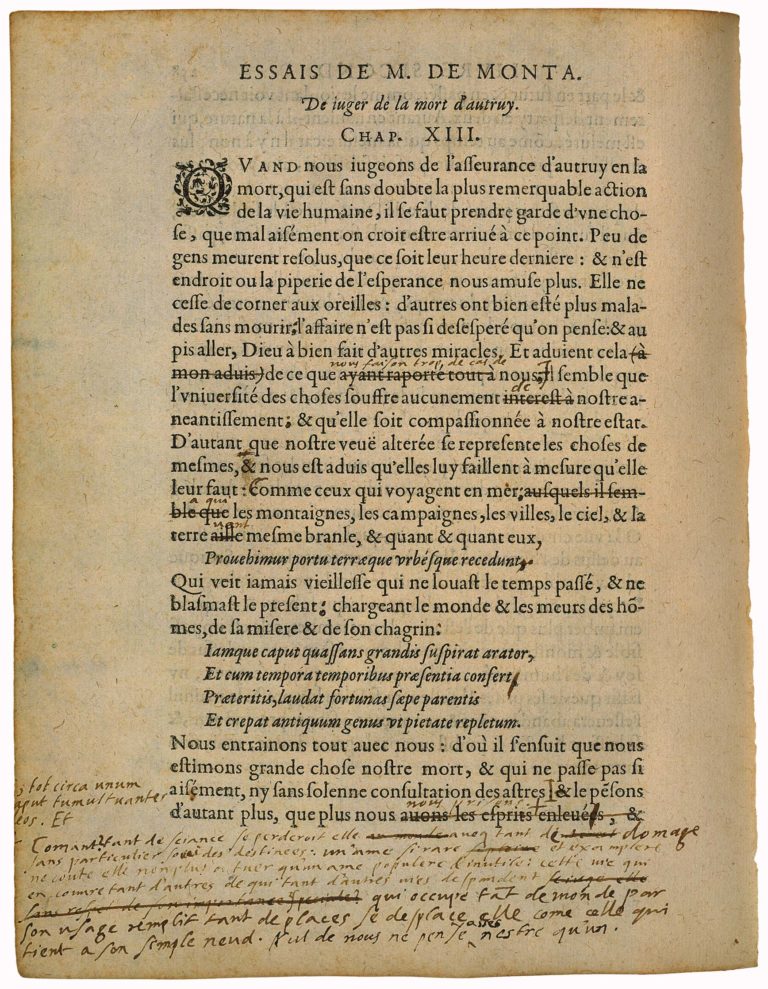 ESSAIS DE M. DE MONTA.
De iuger de la mort d'autruy.
CHAP. XIII.
QVAND nous iugeons de l'asseurance d'autruy en la
mort, qui est sans doubte la plus remerquable action
de la vie humaine, il se faut prendre garde d'vne cho-
se, que mal aisément on croit estre arriué à ce point. Peu de
gens meurent resolus, que ce soit leur heure derniere : & n'est
endroit ou la piperie de l'esperance nous amuse plus. Elle ne
cesse de corner aux oreilles : d'autres ont bien esté plus mala-
des sans mourir, l'affaire n'est pas si desesperé qu'on pense: & au
pis aller, Dieu à bien fait d'autres miracles. Et aduient cela (à
nous faison trop de cas de
mon aduis) de ce que ayant raporté tout à nous, Il semble que
de
l'vniuersité des choses souffre aucunement interest à nostre a-
neantissement; & qu'elle soit compassionnée à nostre estat.
D'autant que nostre veuë alterée se represente les choses de
mesmes, & nous est aduis qu'elles luy faillent à mesure qu'elle
leur faut : Comme ceux qui voyagent en mer, ausquels il sem-
a qui
ble que les montaignes, les campaignes, les villes, le ciel, & la
terre aille mesme branle, & quant & quant eux,
Prouehimur portu terræque vrbésque recedunt,
Qui veit iamais vieillesse qui ne louast le temps passé, & ne
blasmast le present; chargeant le monde & les meurs des hō-
mes, de sa misere & de son chagrin:
Iamque caput quassans grandis suspirat arator,
Et cum tempora temporibus præsentia confert
Præteritis, laudat fortunas sæpe parentis
Et crepat antiquum genus vt pietate repletum.
Nous entrainons tout auec nous : d'où il s'ensuit que nous
estimons grande chose nostre mort, & qui ne passe pas si
aisément, ny sans solenne consultation des astres & le pēsons
tot circa unum
caput tumultuantes
deos. Et
nous prisons
d'autant plus, que plus nous auons les esprits enleués, &
Comant tant de sciance se perderoit elle auoq tant de domage
sans particulier souci des destinees: un'ame si rare et examplere
ne coute elle non plus a tuer qu'un'ame populere & inutile: cette vie qui
en couure tant d'autres de qui tant d'autres vies despandent
qui occupe tāt de monde par
son usage remplit tant de places se desplace elle come celle qui
tient a son simple neud. Nul de nous ne pense asses n'estre qu'un.